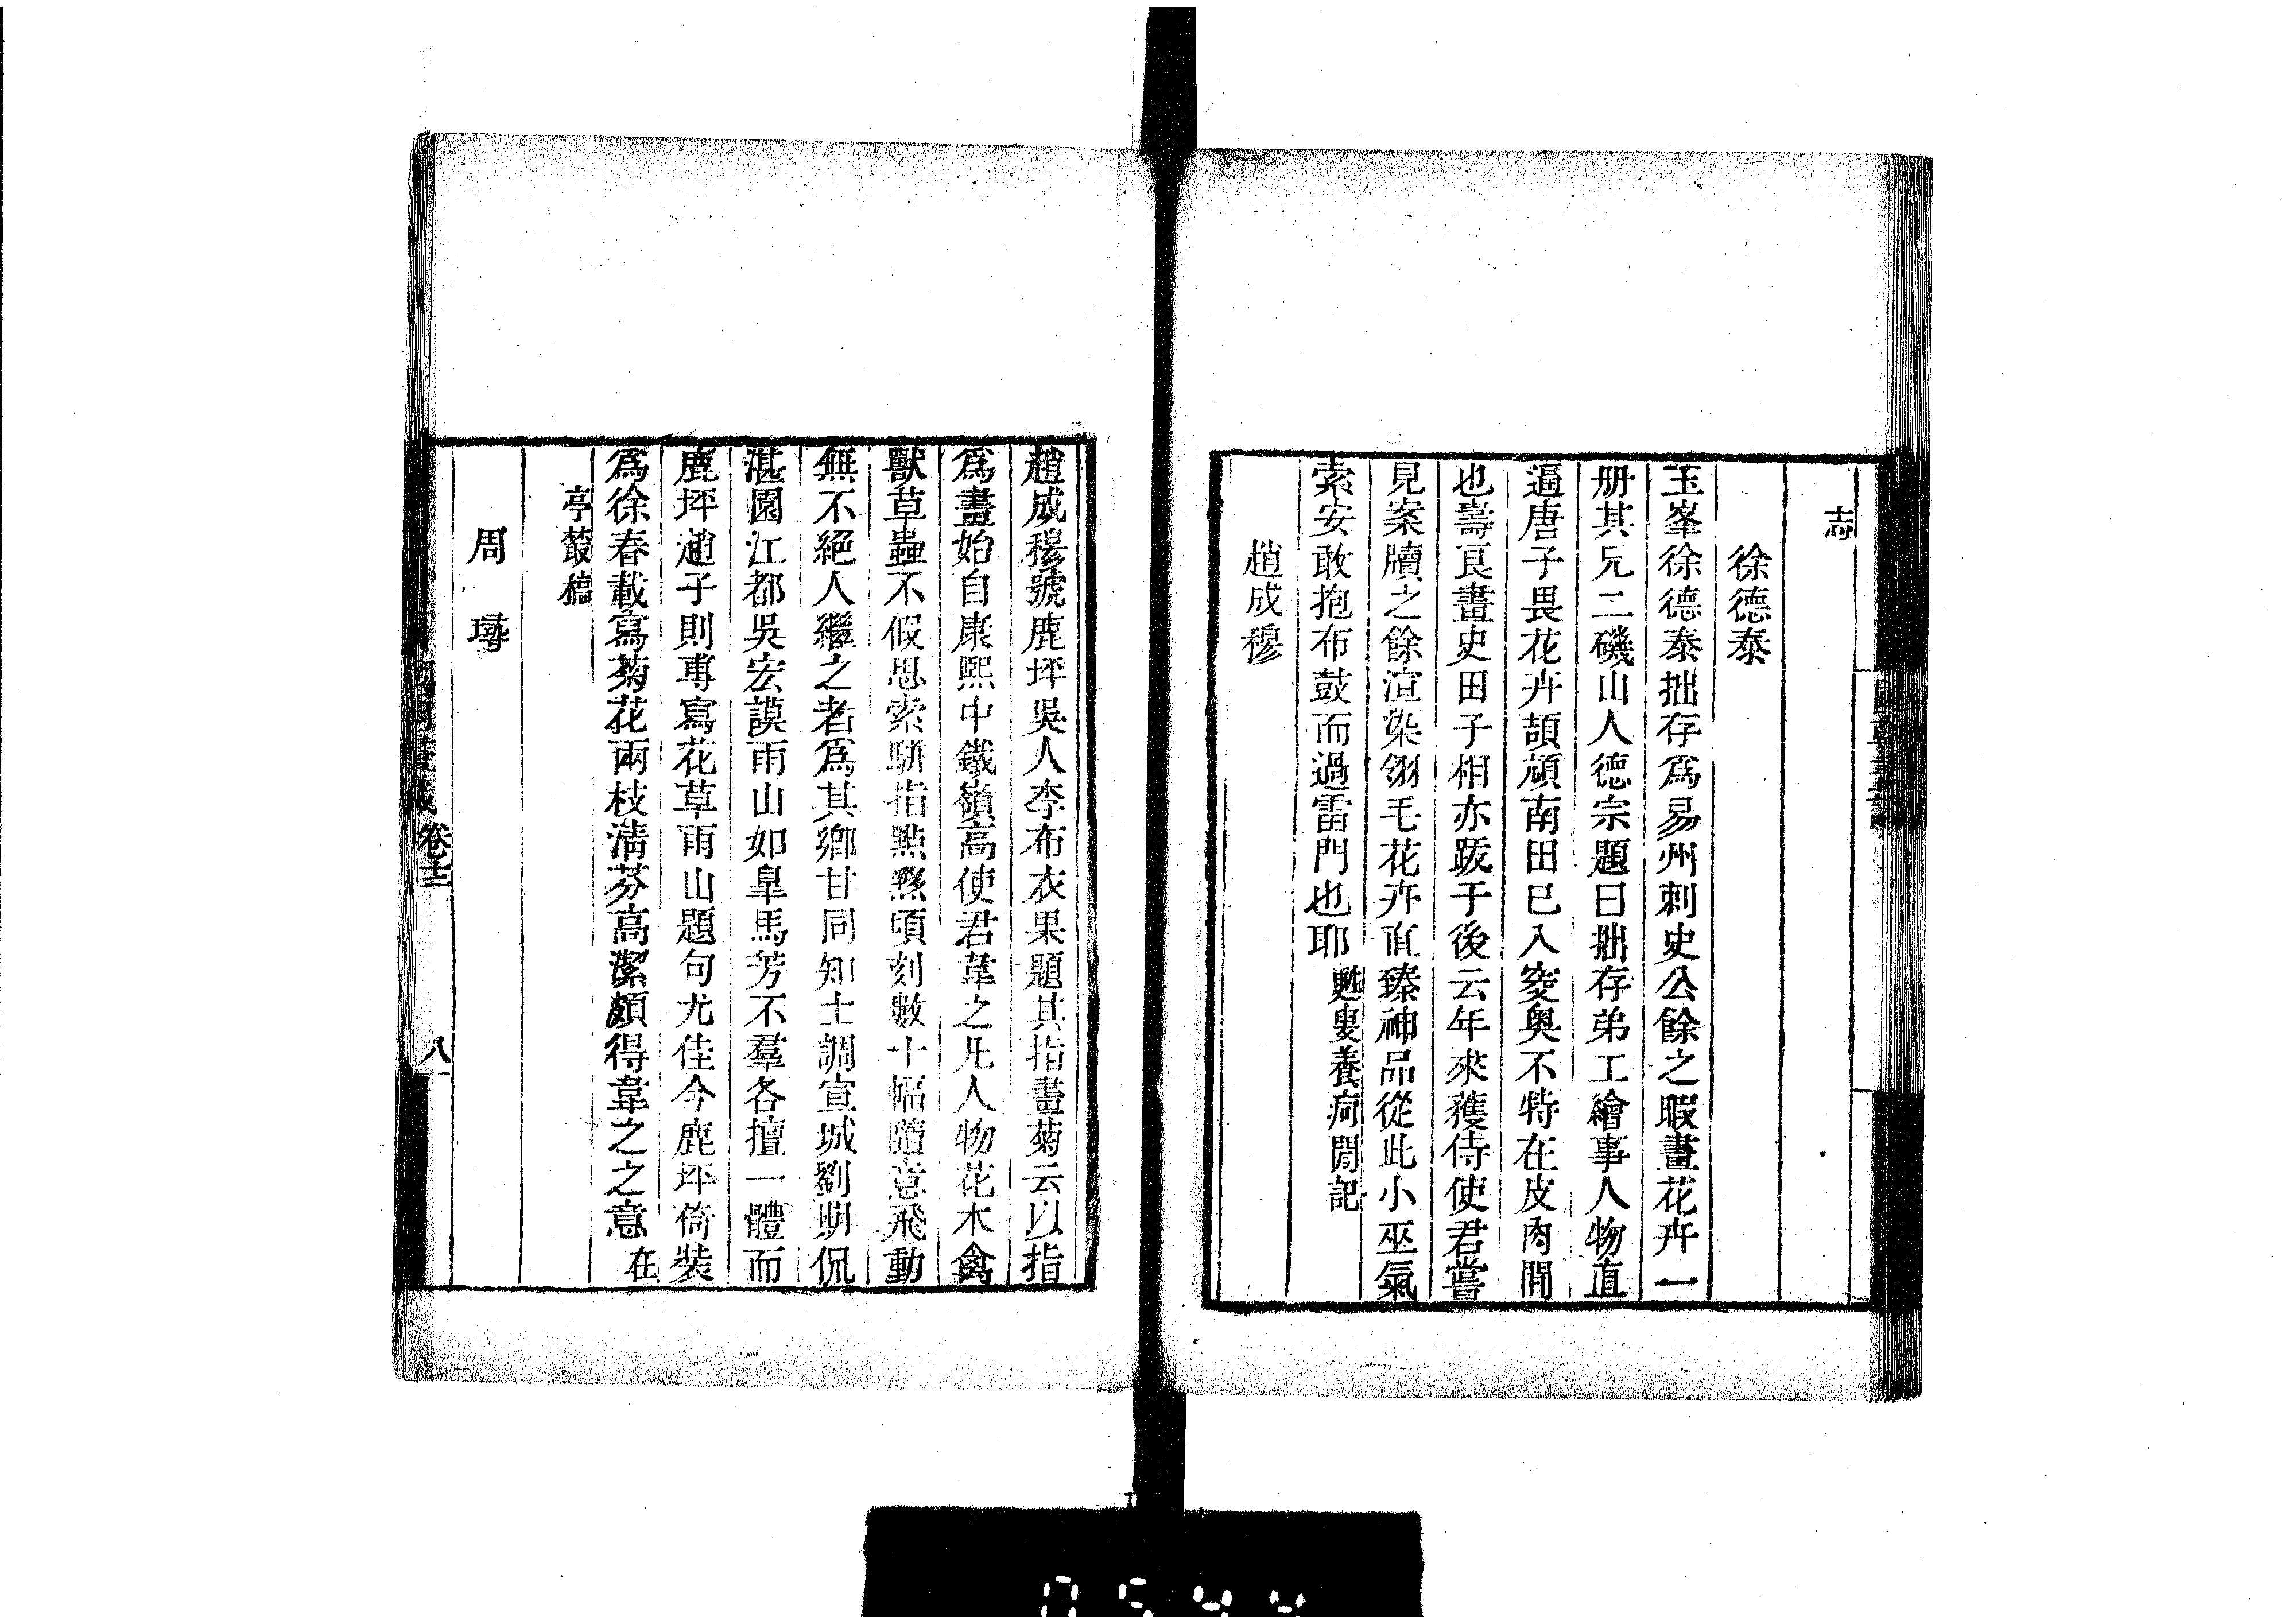 志
徐德泰
玉峯徐德泰拙存爲易州刺史公餘之暇畫花卉一
册其兄二磯山人德宗題曰拙存弟工繪事人物直
逼唐子畏花卉頡頏南田已入窔奥不特在皮肉閒
也壽良畫史田子相亦跋于後云年來獲侍使君嘗
見案牘之餘渲染翎毛花卉直臻神品從此小巫氣
索安敢抱布鼓而過雷門也耶 甦叟養疴閒記
趙成穆
趙成穆號鹿坪吳人李布衣果題其指畫菊云以指
爲畫始自康熙中鐵嶺高使君韋之凡人物花木禽
獸草蟲不假思索駢指點㸃頃刻數十幅隨意飛動
無不絕人繼之者爲其鄉甘同知士調宣城劉明侃
湛園江都吳宏謨雨山如臯馬芳不羣各擅一體而
鹿坪趙子則専寫花草雨山題句尤佳今鹿坪倚裝
爲徐春載寫菊花兩枝淸芬高潔頗得韋之之意 在
亭叢稿
周㻏
卷十二
八